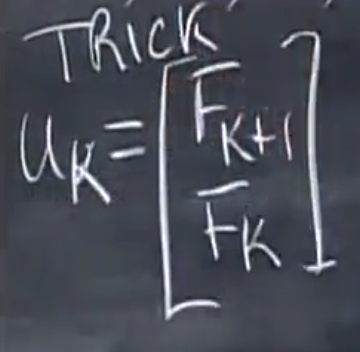 TRICK
u_K = [F_{K+1}
F_K]